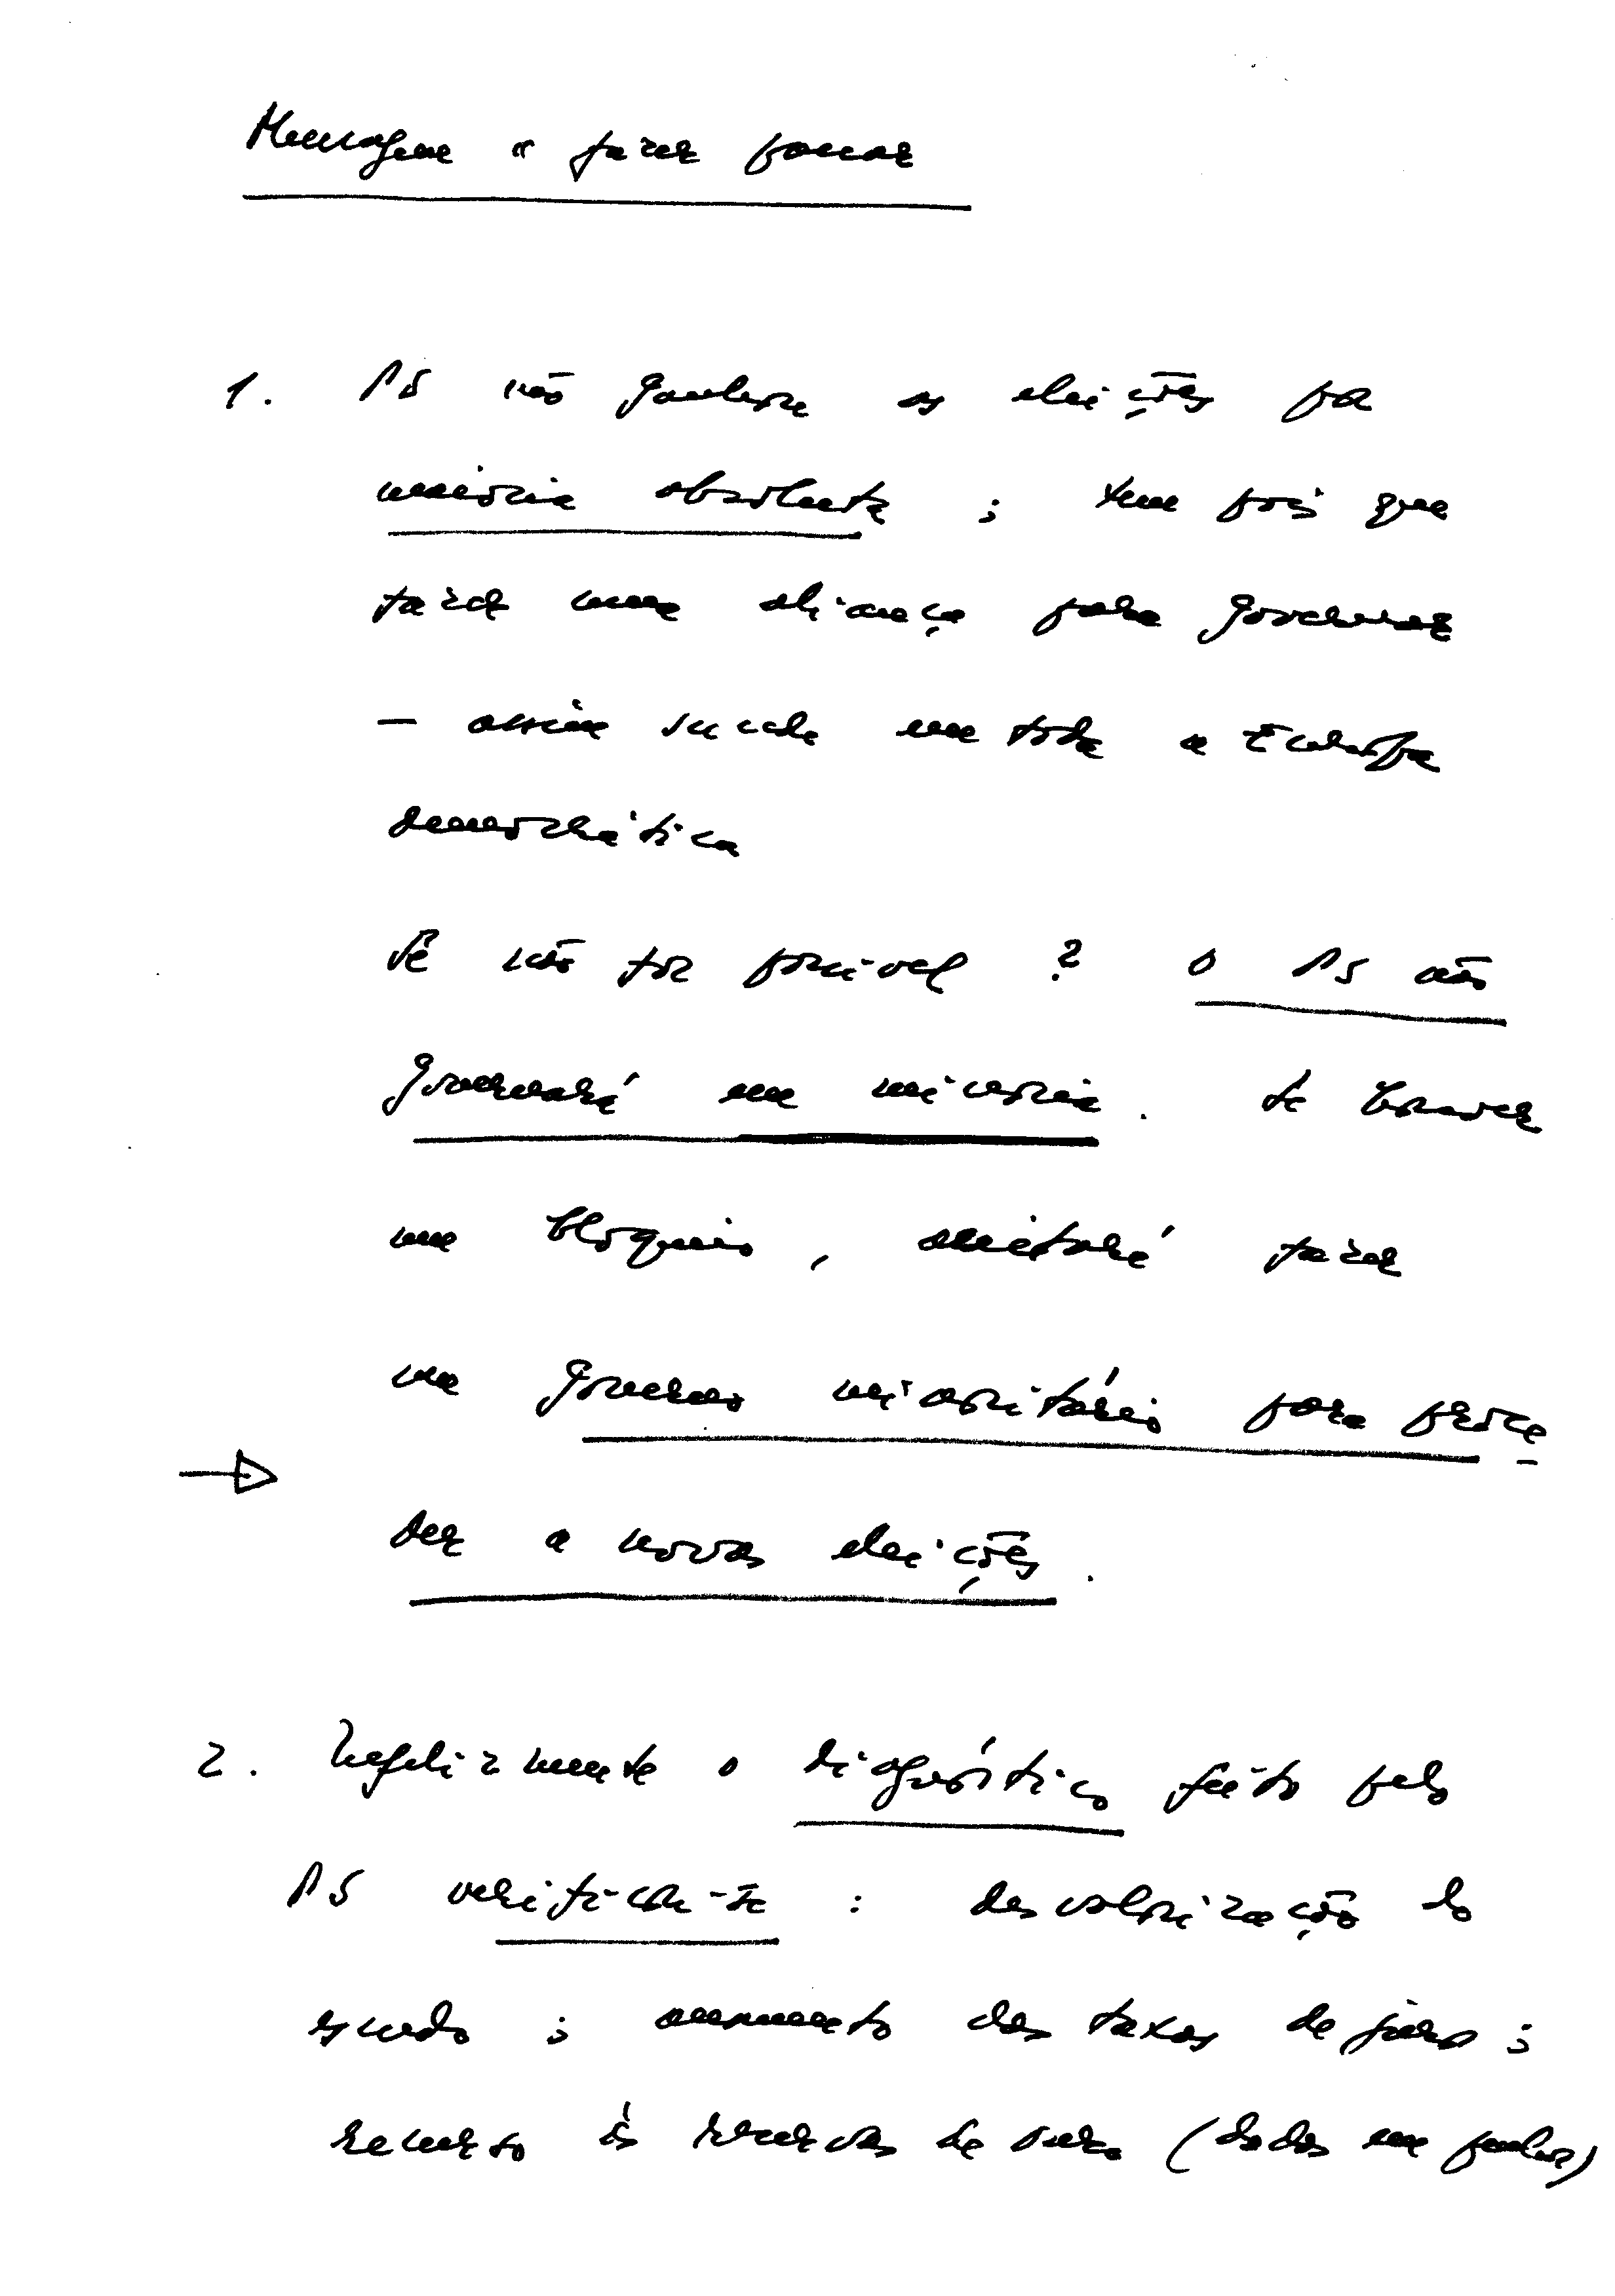 Mensagem a fazer passar
1. PS não ganhou as eleições pa
maioria absoluta ; tem pois que
fazer uma aliança para governar
– assim sucede em toda a Europa
democrática
Se não for possível ? O PS não
governará em minoria . Se houver
um bloqueio , aceitará fazer
um governo minoritário para proce
der a novas eleições .
2. Infelizmente o diagnóstico feito pelo
PS verifica-se : desvalorização do
escudo ; aumento das taxas de juro ;
recurso às reservas de ouro (dadas em penhor)